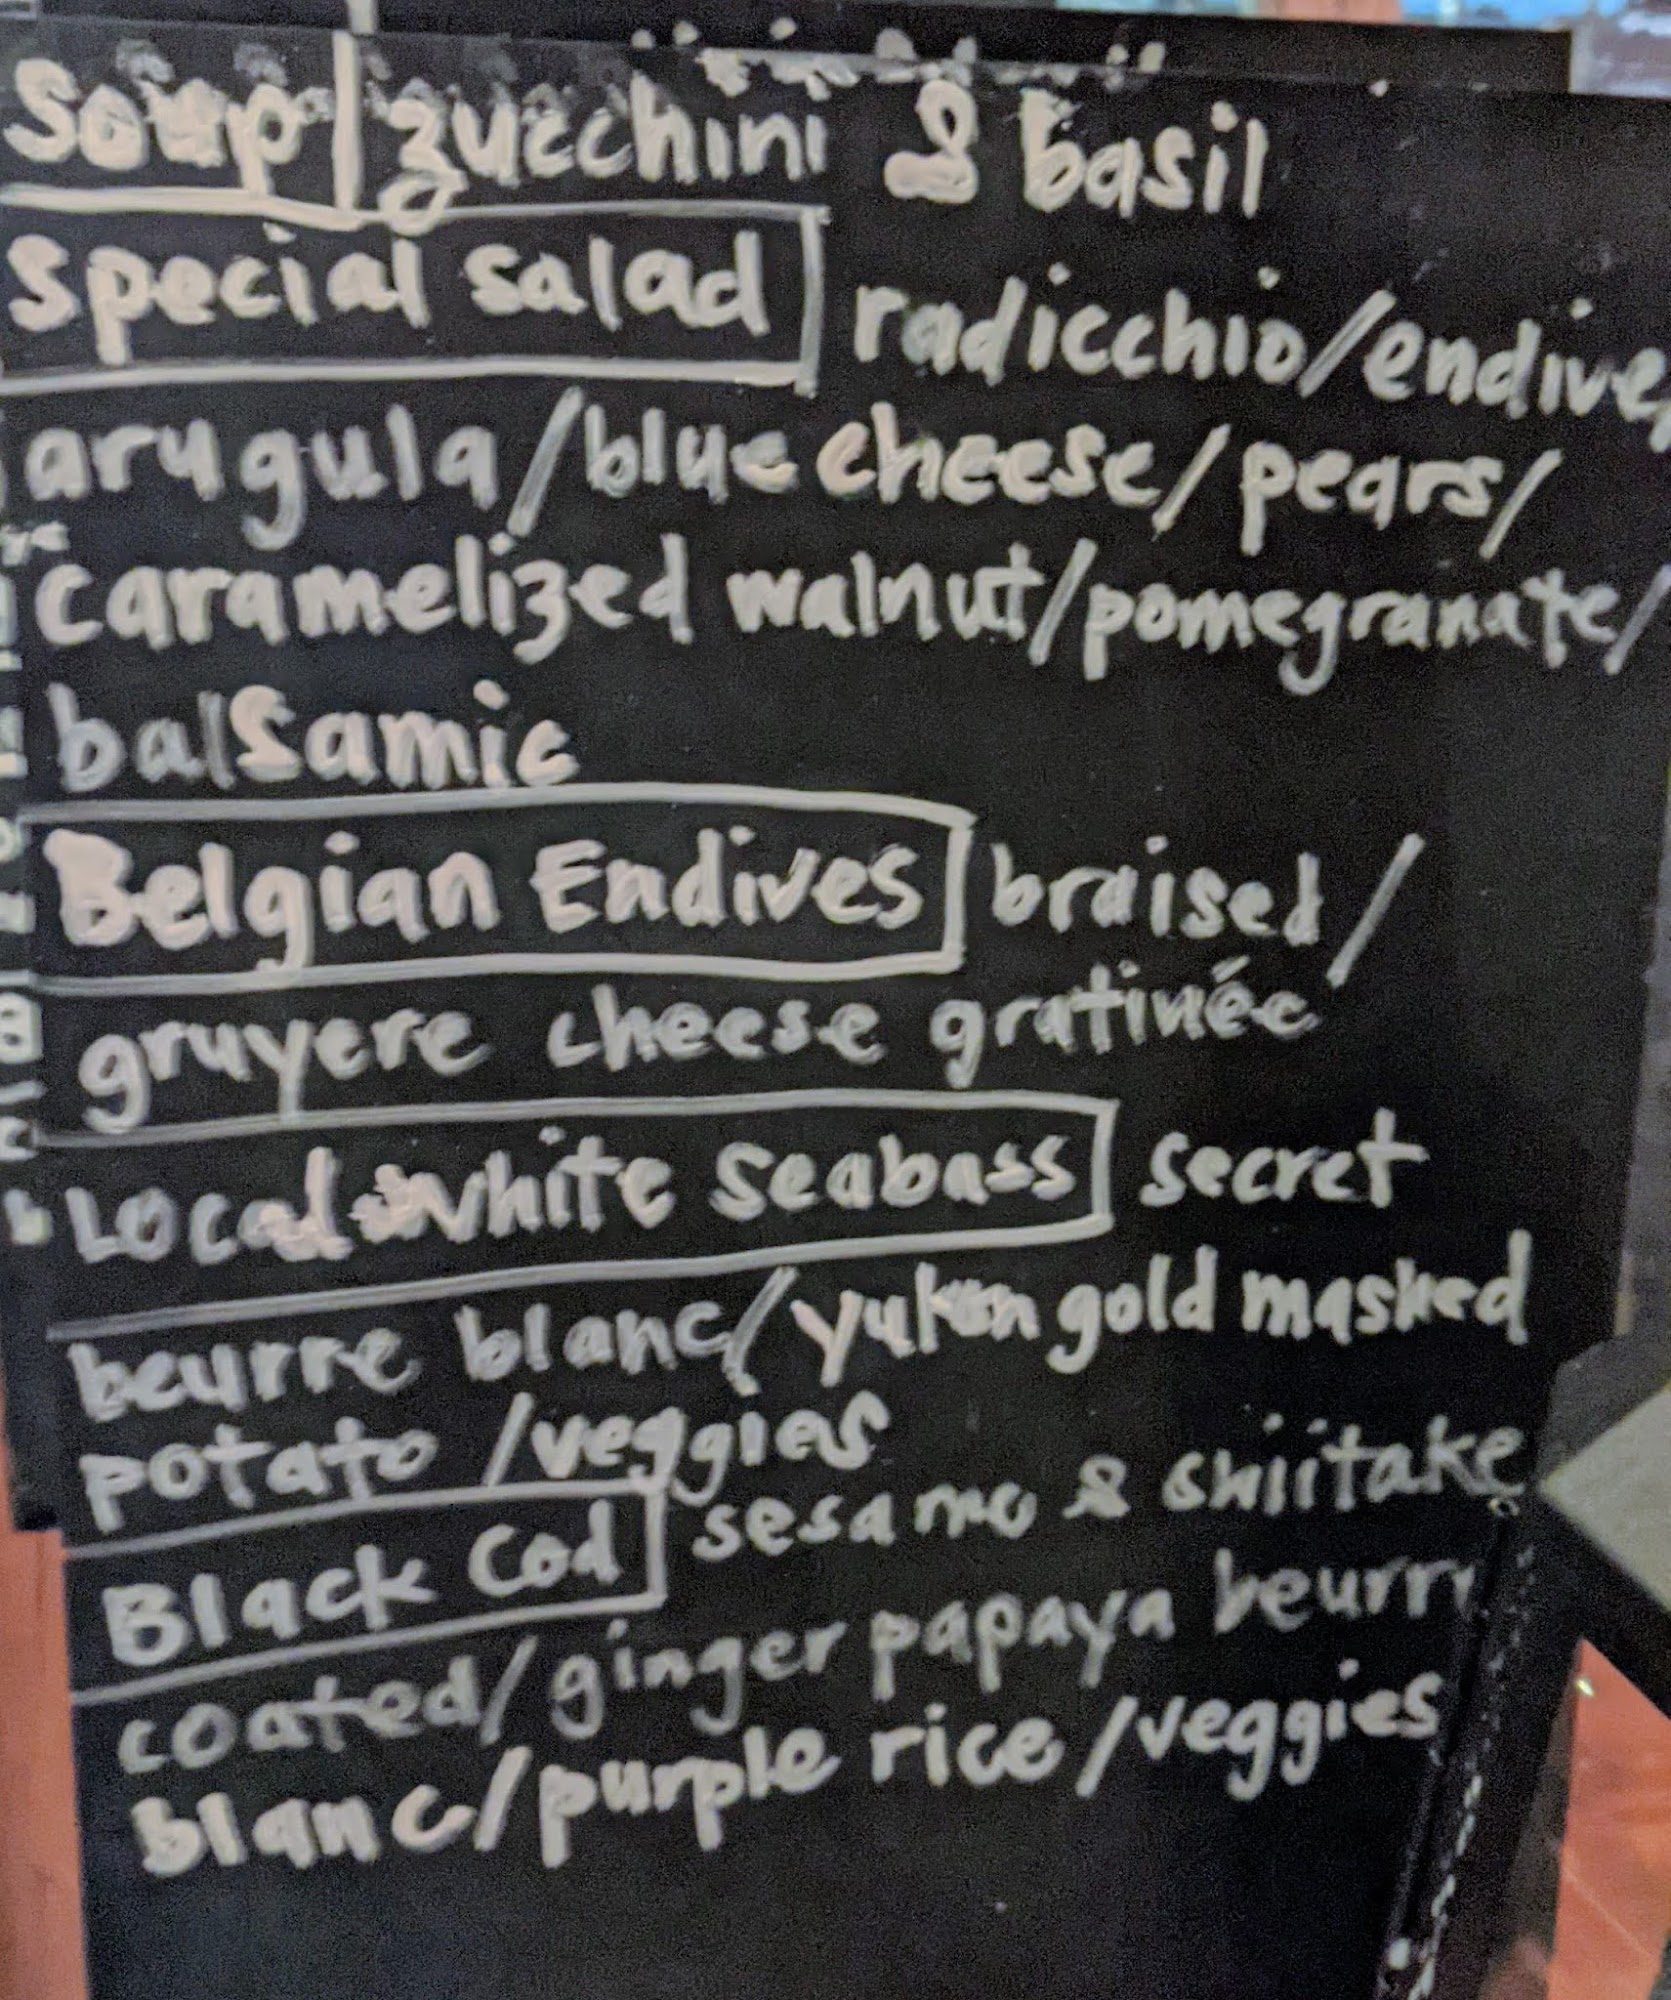 Soup | zucchini & basil
Special salad radicchio/endive,
arugula/blue cheese/pears/
caramelized walnut/pomegranate/
balsamic
Belgian Endives braised/
gruyere cheese gratinée
Local white seabass secret
beurre blanc/yukon gold mashed
potato/veggies
Black Cod sesame & shiitake
coated/ginger papaya beurre
blanc/purple rice/veggies